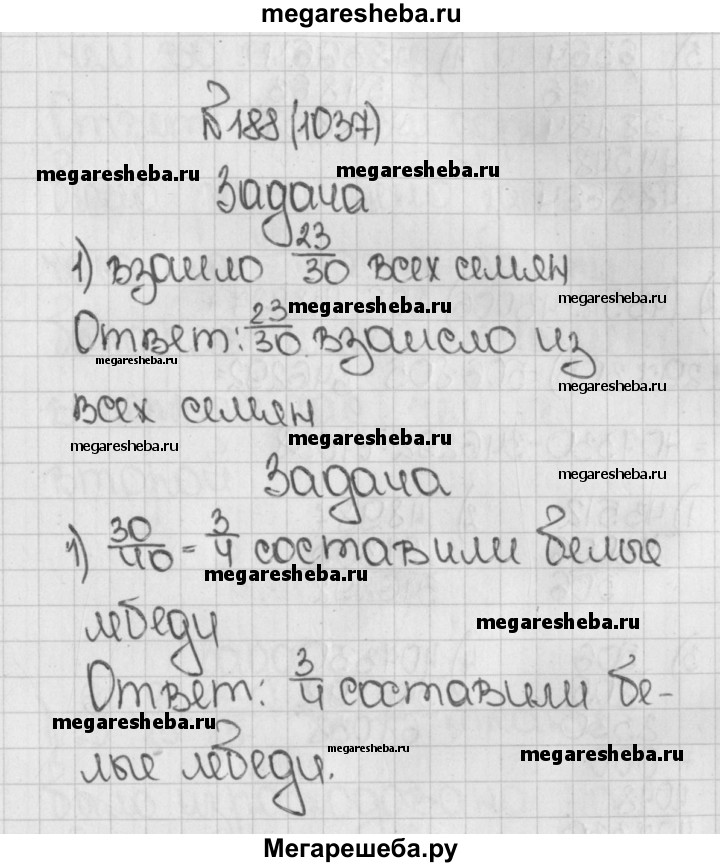 megaresheba.ru
№188(1037)
megaresheba.ru megaresheba.ru
Задача
1) взаило 23/30 всех семян
megaresheba.ru megaresheba.ru
Ответ: 23/30 взаисло из
megaresheba.ru megaresheba.ru
всех семян
megaresheba.ru megaresheba.ru megaresheba.ru
Задача
1) 30/40 = 3/4 составили белые
megaresheba.ru
лебеди
megaresheba.ru
Ответ: 3/4 составили бе-
megaresheba.ru
лые лебеди.
megaresheba.ru megaresheba.ru
Мегарешеба.ру